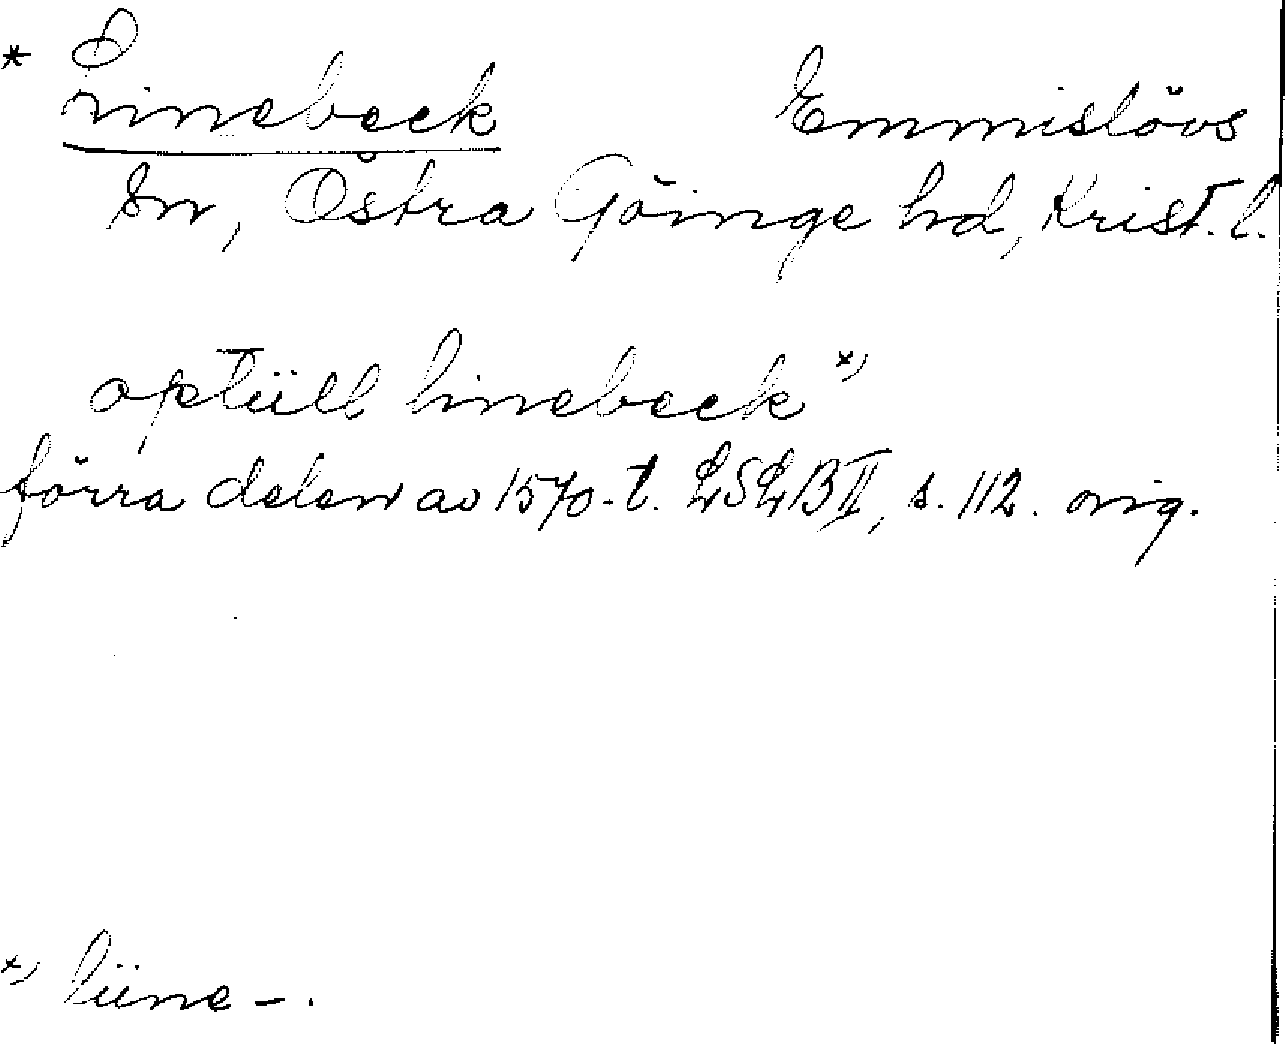 * Linebeck Emmislövs
sn, Östra Göinge hd, Krist. l.
optüll linebeck *)
förra delen av 1570-t. LSLB II, s. 112. orig.
*) lüne - .